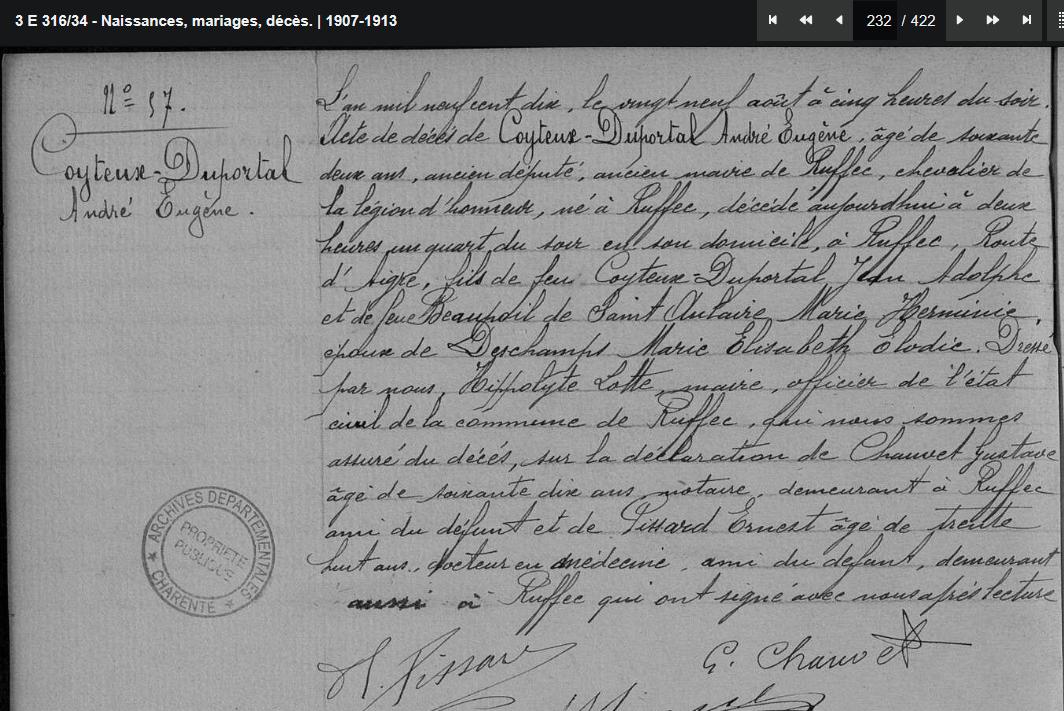 3 E 316/34 - Naissances, mariages, décès. | 1907-1913
232 / 422
Nº 57.
Coyteux-Duportal
André Eugène.
L'an mil neuf cent dix, le vingt neuf août à cinq heures du soir.
Acte de décès de Coyteux-Duportal André Eugène, âgé de soixante
deux ans, ancien député, ancien maire de Ruffec, chevalier de
la légion d'honneur, né à Ruffec, décédé aujourdhui à deux
heures un quart du soir en son domicile, à Ruffec, Route
d'Aigre, fils de feu Coyteux=Duportal Jean Adolphe
et de feue Beaupoil de Saint Aulaire Marie Herminie,
époux de Deschamps Marie Elisabeth Elodie. Dressé
par nous, Hippolyte Lotte, maire, officier de l'état
civil de la commune de Ruffec, qui nous sommes
assuré du décés, sur la déclaration de Chauvet Gustave
âgé de soixante dix ans, notaire, demeurant à Ruffec
ami du défunt et de Pissard Ernest âgé de trente
huit ans, docteur en médecine, ami du défunt, demeurant
aussi à Ruffec qui ont signé avec nous après lecture
Pissard
G. Chauvet
ARCHIVES DEPARTEMENTALES
PROPRIETE
PUBLIQUE
★ CHARENTE ★